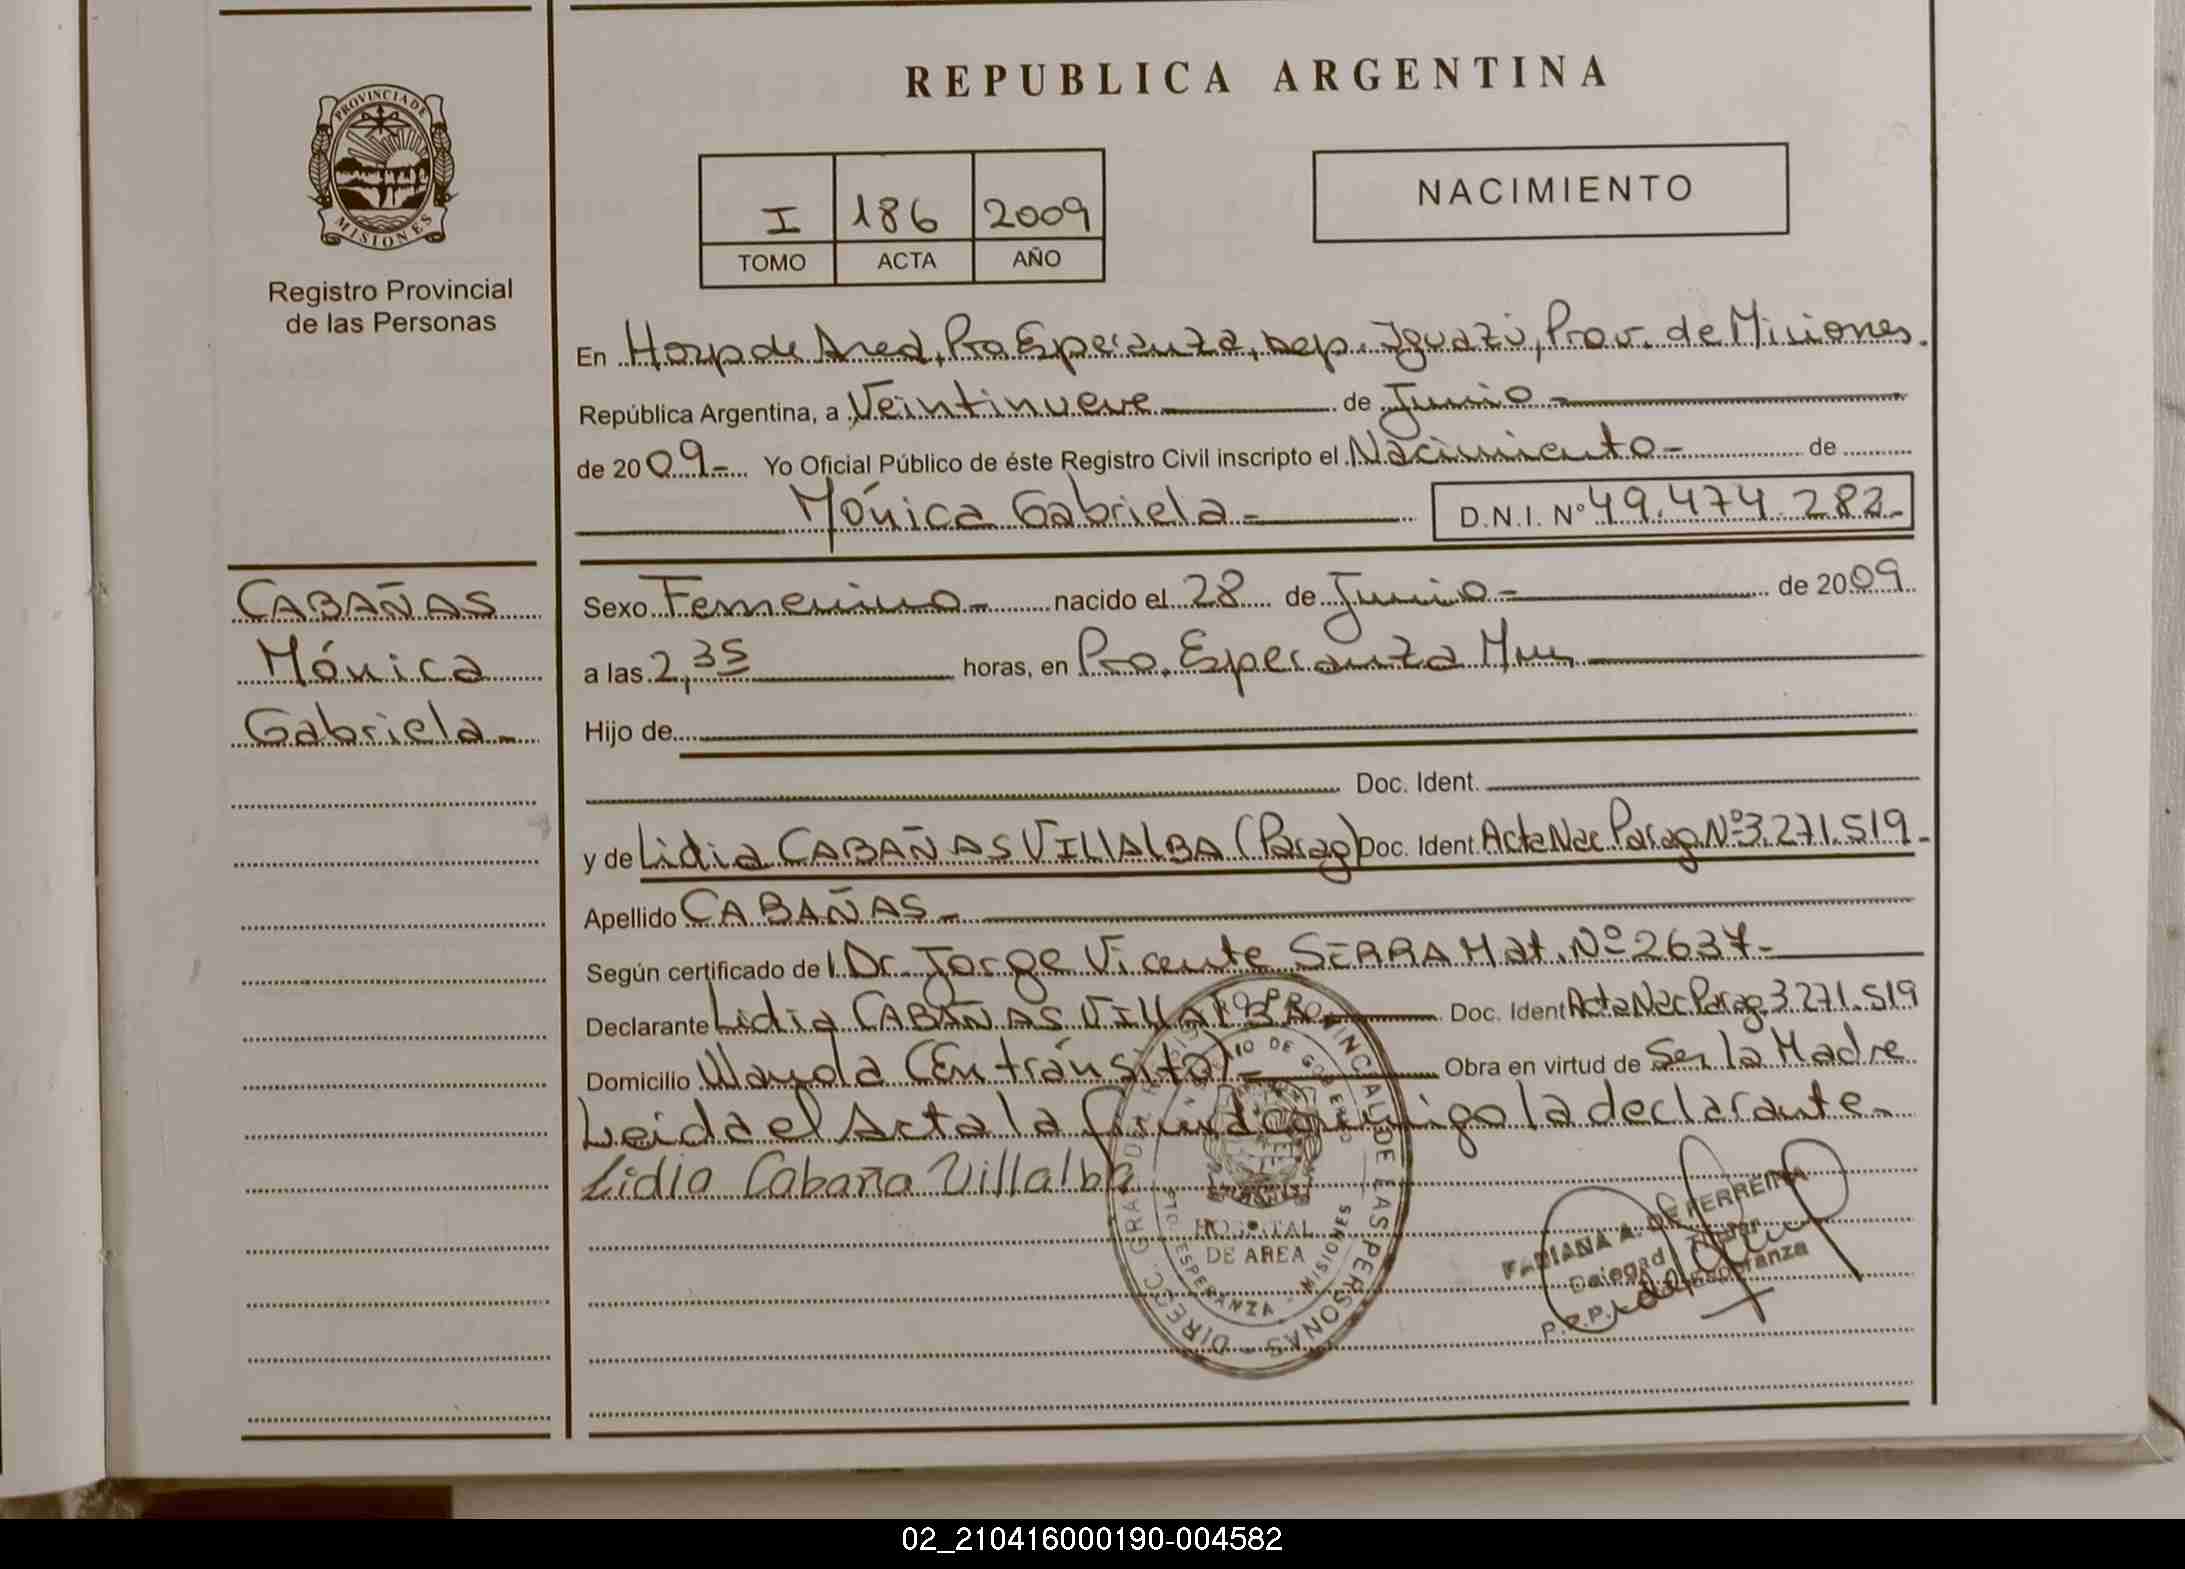 REPUBLICA ARGENTINA
PROVINCIA DE
MISIONES
Registro Provincial
de las Personas
NACIMIENTO
I 186 2009
TOMO ACTA AÑO
En Hosp de Area, Pto Esperanza, Dep. Iguazú, Prov. de Misiones.
República Argentina, a Veintinueve de Junio
de 2009- Yo Oficial Público de éste Registro Civil inscripto el Nacimiento- de
Mónica Gabriela- D.N.I. Nº 49.474.282-
CABAÑAS
Mónica
Gabriela-
Sexo Femenino- nacido el 28 de Junio- de 2009
a las 2,35 horas, en Pto. Esperanza Mnes
Hijo de
Doc. Ident.
y de Lidia CABAÑAS VILLALBA (Parag) Doc. Ident. Acta Nac Parag Nº 3.271.519-
Apellido CABAÑAS-
Según certificado de Dr. Jorge Vicente SERRA Mat. Nº 2637-
Declarante Lidia CABAÑAS VILLALBA Doc. Ident Acta Nac Parag 3.271.519
Domicilio Wanda (En tránsito)- Obra en virtud de Ser la Madre
Leida el Acta la firma conmigo la declarante-
Lidia Cabaña Villalba
DIREC. GRAL DEL REGISTRO PROVINCIAL DE LAS PERSONAS
HOSPITAL
DE AREA
PTO. ESPERANZA - MISIONES
FABIANA A. DE FERREIRA
Esperanza
02_210416000190-004582